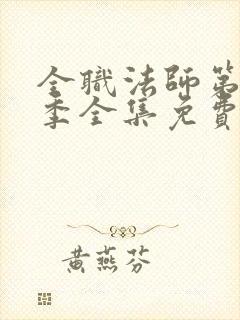 全職法師第
季全集免費
黃燕芬